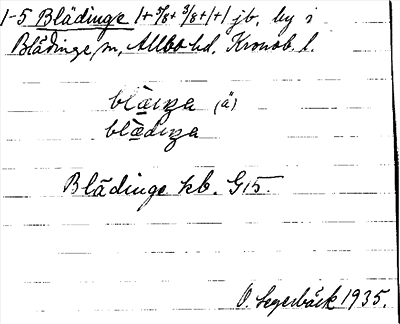 1-5 Blädinge 1+5/8+3/8+1+1 jb, by i
Blädinge, sn, Allbo hd, Kronob. l.
(ä)
Blädinge kb. G15.
O. Segerbäck 1935.